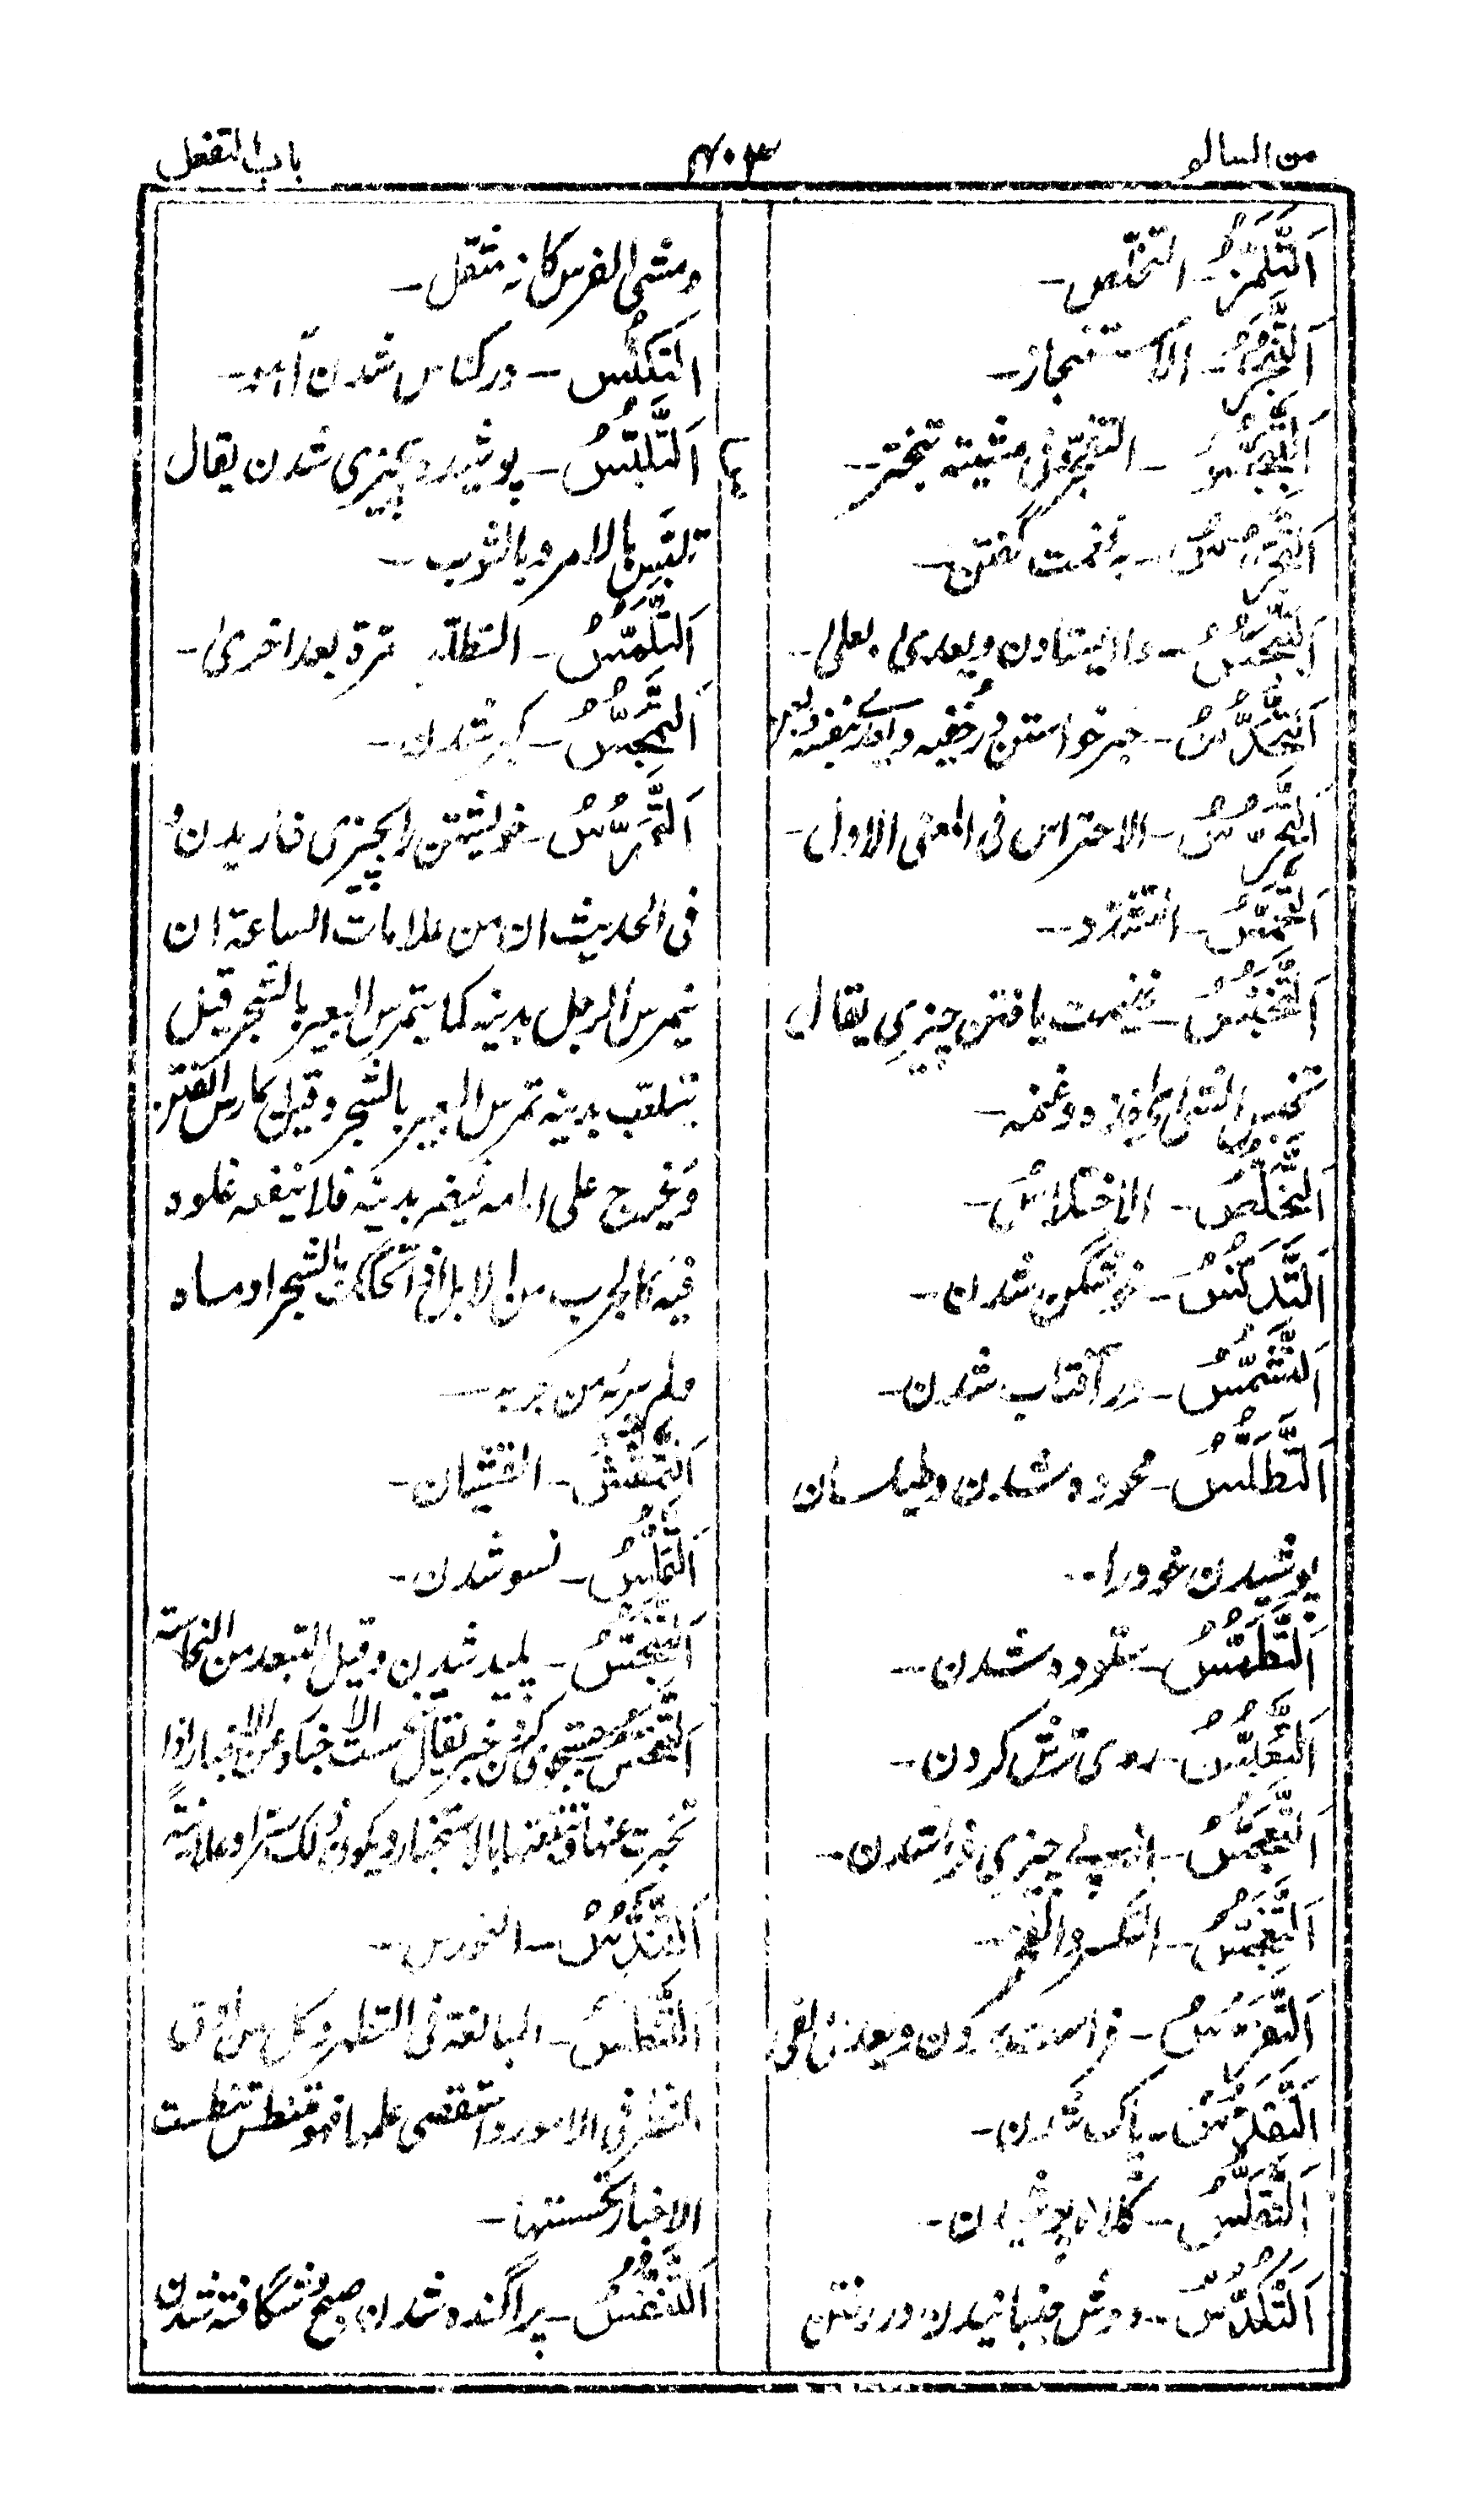 من السالم
۴۰۳
باب التفعل
اَلتَّلَمُّزُ - التخلص -
اَلتَّنَجُّزُ - الاستنجاز -
التبختر فی مشیته تبختر -
گفتن -
اَلتَّحَبُّسُ - وا ایستادن ویعدی بعلی -
اَلتَّحَدُّسُ - خبر خواستن در خفیه
اَلتَّحَرُّسُ - الاحتراس فی المعنی الاول -
اَلتَّحَمُّسُ - التشدد -
اَلتَّخَبُّسُ - غنیمت یافتن چیزی یقال
تخبس الشئ ای اخذه وغنمه -
الاختلاس -
اَلتَّدَكُّسُ - شدن -
اَلتَّشَمُّسُ - در آفتاب شدن -
اَلتَّطَلُّسُ - محو شدن و طیلسان
پوشیدن خود را -
اَلتَّطَمُّسُ - ستوده شدن -
اَلتَّعَبُّسُ - روی ترش کردن -
چیزی فرا شدن -
اَلتَّفَرُّسُ - فراست بردن ویعدی بفی
اَلتَّقَدُّسُ - پاک شدن -
اَلتَّقَلُّسُ - کلاه پوشیدن -
اَلتَّكَدُّسُ - دوش جنبانیدن در رفتن
ومشی الفرس کانه مثقل -
اَلتَّكَنُّسُ - در کناس شدن آهو -
اَلتَّلَبُّسُ - پوشیده بچیزی شدن یقال
تلبس بالامر وبالثوب -
اَلتَّلَمُّسُ - التطلب مرة بعد اخری -
اَلتَّمَجُّسُ - گبر شدن -
اَلتَّمَرُّسُ - خویشتن را بچیزی خاریدن و
فی الحدیث ان من علامات الساعة ان
یتمرس الرجل بدینه کما یتمرس البعیر بالشجر قیل
یتلعب بدینه تمرس البعیر بالشجر وقیل یمارس الفتن
ویخرج علی امامه فیضر بدینه فلا ینفعه غلوه
فیه کالجرب من الابل اذا تحاکت بالشجر ادماه
ولم یبرئه من جربه -
اَلتَّمَقُّسُ - الغثیان -
اَلتَّمَلُّسُ - نسو شدن -
اَلتَّنَجُّسُ - پلید شدن وقیل التبعد من النجاسة
جستجوی کردن خبر یقال تنحست الاخبار وعن الاخبار اذا
تخبرت عنها وتتبعتها بالاستخبار ویکون ذلک سرا وعلانیة
اَلتَّنَدُّسُ -
اَلتَّنَطُّسُ - المبالغة فی التطهر وکل من ادق
النظر فی الامور واستقصی علمها فهو متنطس تنطست
الاخبار تجسستها -
اَلتَّنَفُّسُ - پراگنده شدن صبح و شگافته شدن